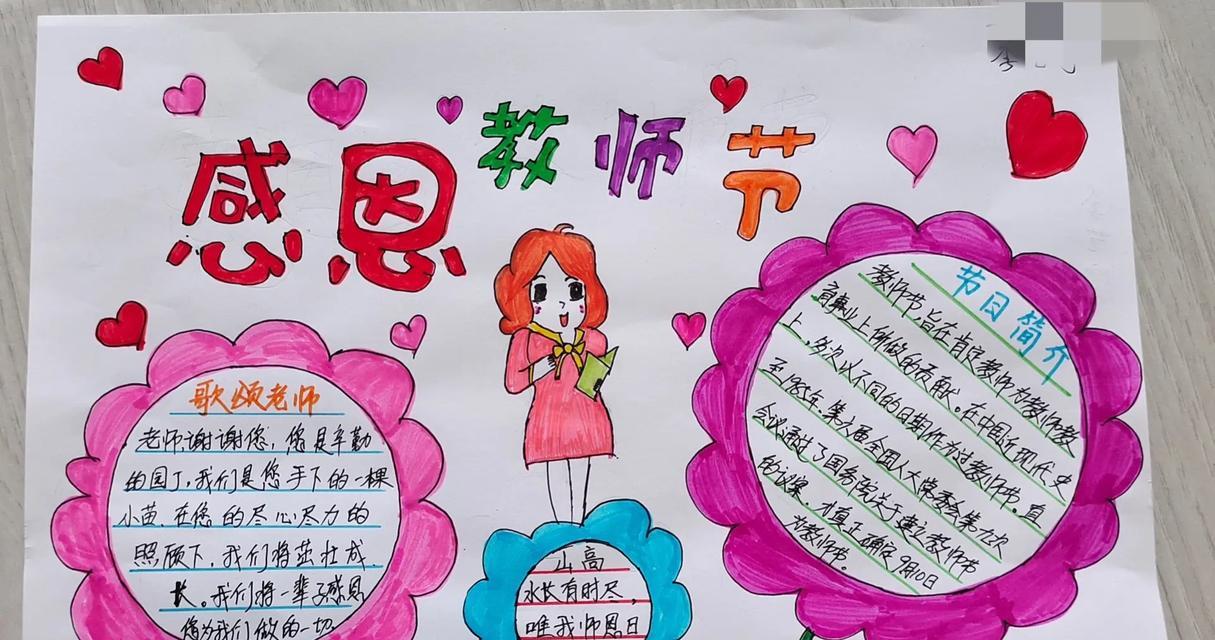 感恩教师节
歌颂老师
老师,谢谢您,您是辛勤
的园丁,我们是您手下的一棵
小苗.在您的尽心尽力的
照顾下,我们将茁壮成
长。我们将一辈子感恩
您为我们做的一切
山高
水长有时尽,
唯我师恩日
节日简介
教师节旨在肯定教师为教师教
育事业上所做的贡献。在中国近现代史
上,多次以不同的日期作为过教师节。直
至1985年,第六届全国人大常委会第九次
会议通过了国务院关于建立教师节
的议案,才真正确定9月10日
为教师节。